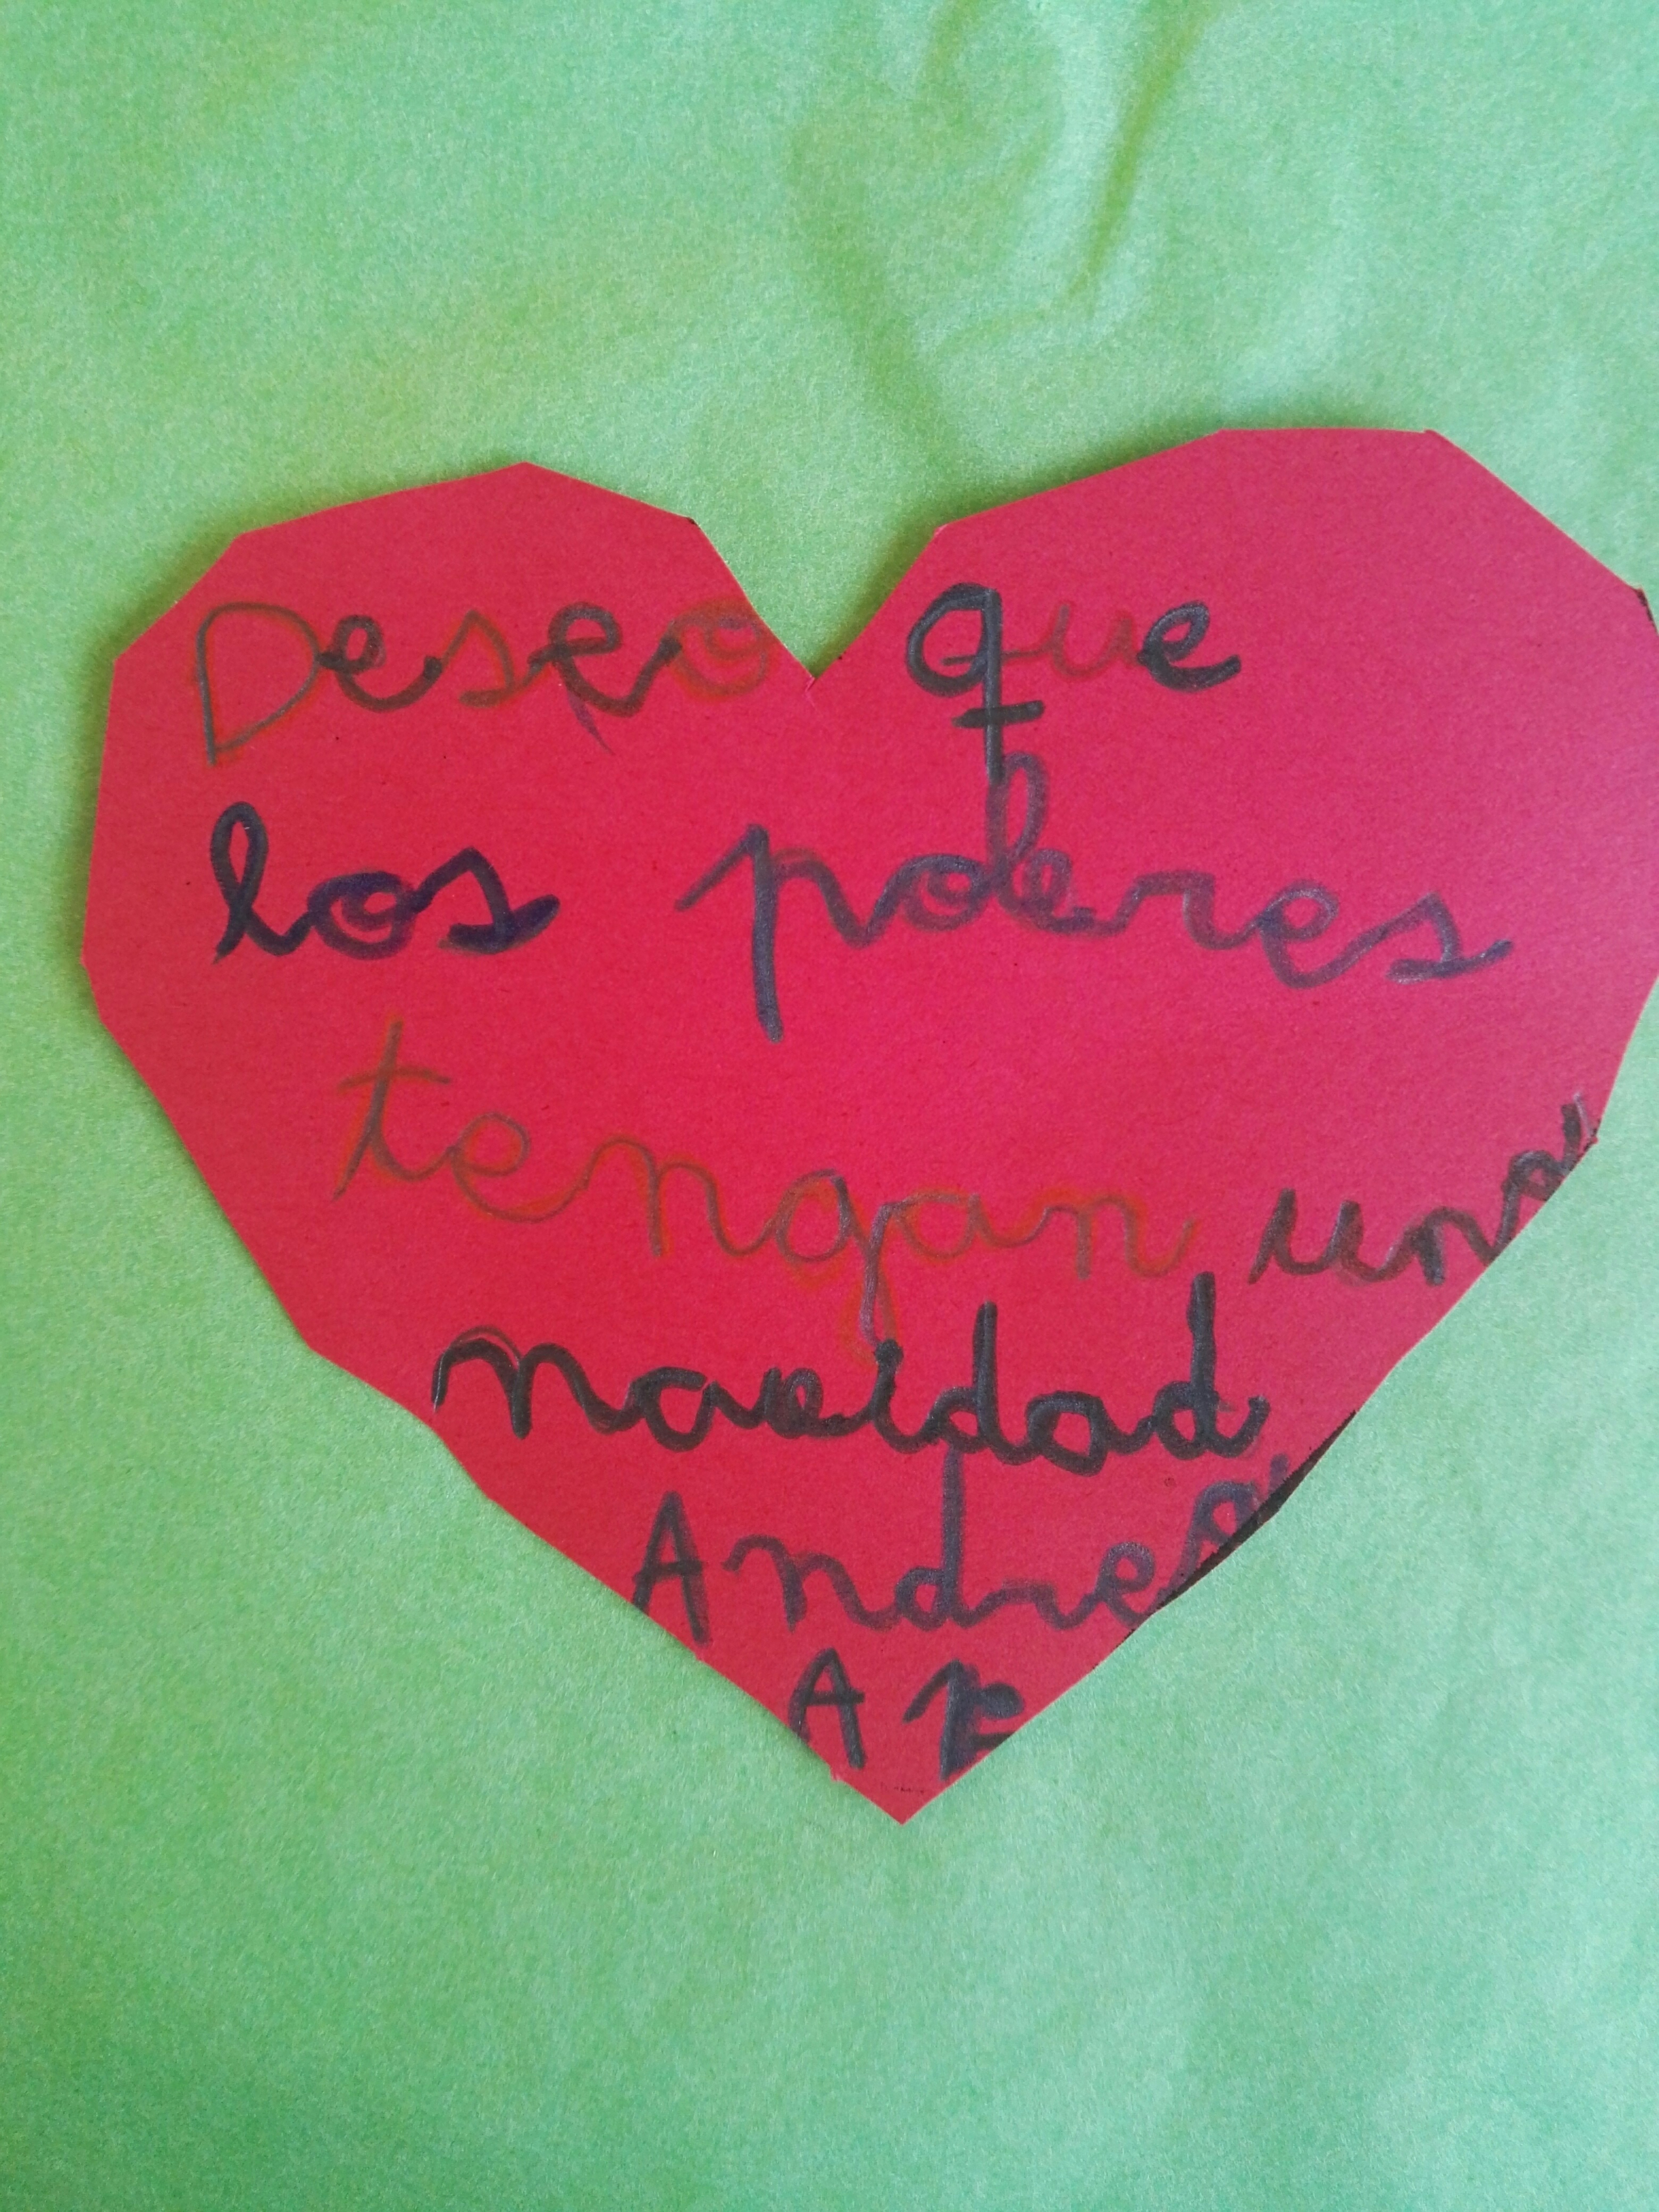 Deseo que
los pobres
tengan una
navidad
Andrea
A P